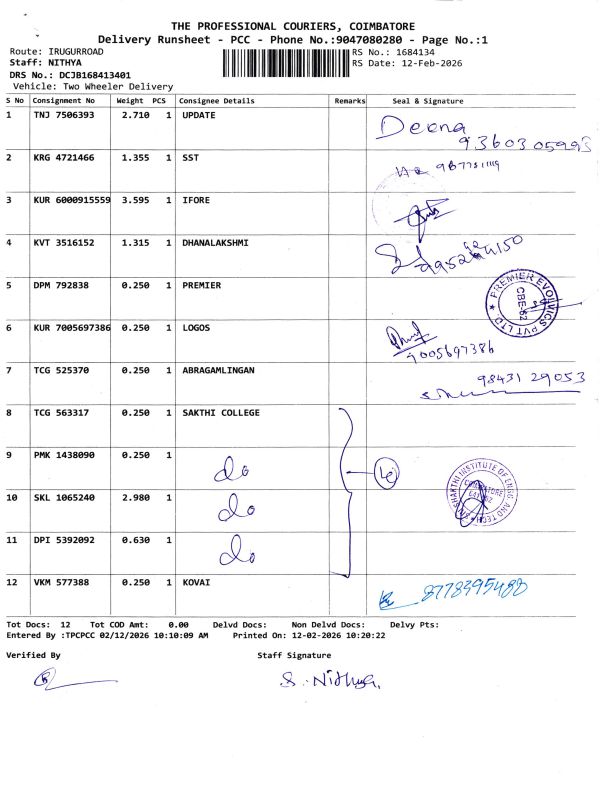 THE PROFESSIONAL COURIERS, COIMBATORE
Delivery Runsheet - PCC - Phone No.:9047080280 - Page No.:1
Route: IRUGURROAD RS No.: 1684134
Staff: NITHYA RS Date: 12-Feb-2026
DRS No.: DCJB168413401
Vehicle: Two Wheeler Delivery
S No Consignment No Weight PCS Consignee Details Remarks Seal & Signature
1 TNJ 7506393 2.710 1 UPDATE Deena
9360305993
2 KRG 4721466 1.355 1 SST
3 KUR 6000915559 3.595 1 IFORE
4 KVT 3516152 1.315 1 DHANALAKSHMI
5 DPM 792838 0.250 1 PREMIER PREMIER EVOLVICS PVT LTD CBE-62
6 KUR 7005697386 0.250 1 LOGOS
7005697386
7 TCG 525370 0.250 1 ABRAGAMLINGAN 98431 29053
8 TCG 563317 0.250 1 SAKTHI COLLEGE
9 PMK 1438090 0.250 1 do
10 SKL 1065240 2.980 1 do SHAKTHI INSTITUTE OF ENGG AND TECH COIMBATORE
11 DPI 5392092 0.630 1 do
12 VKM 577388 0.250 1 KOVAI 8778395480
Tot Docs: 12 Tot COD Amt: 0.00 Delvd Docs: Non Delvd Docs: Delvy Pts:
Entered By :TPCPCC 02/12/2026 10:10:09 AM Printed On: 12-02-2026 10:20:22
Verified By Staff Signature
S. Nithya.